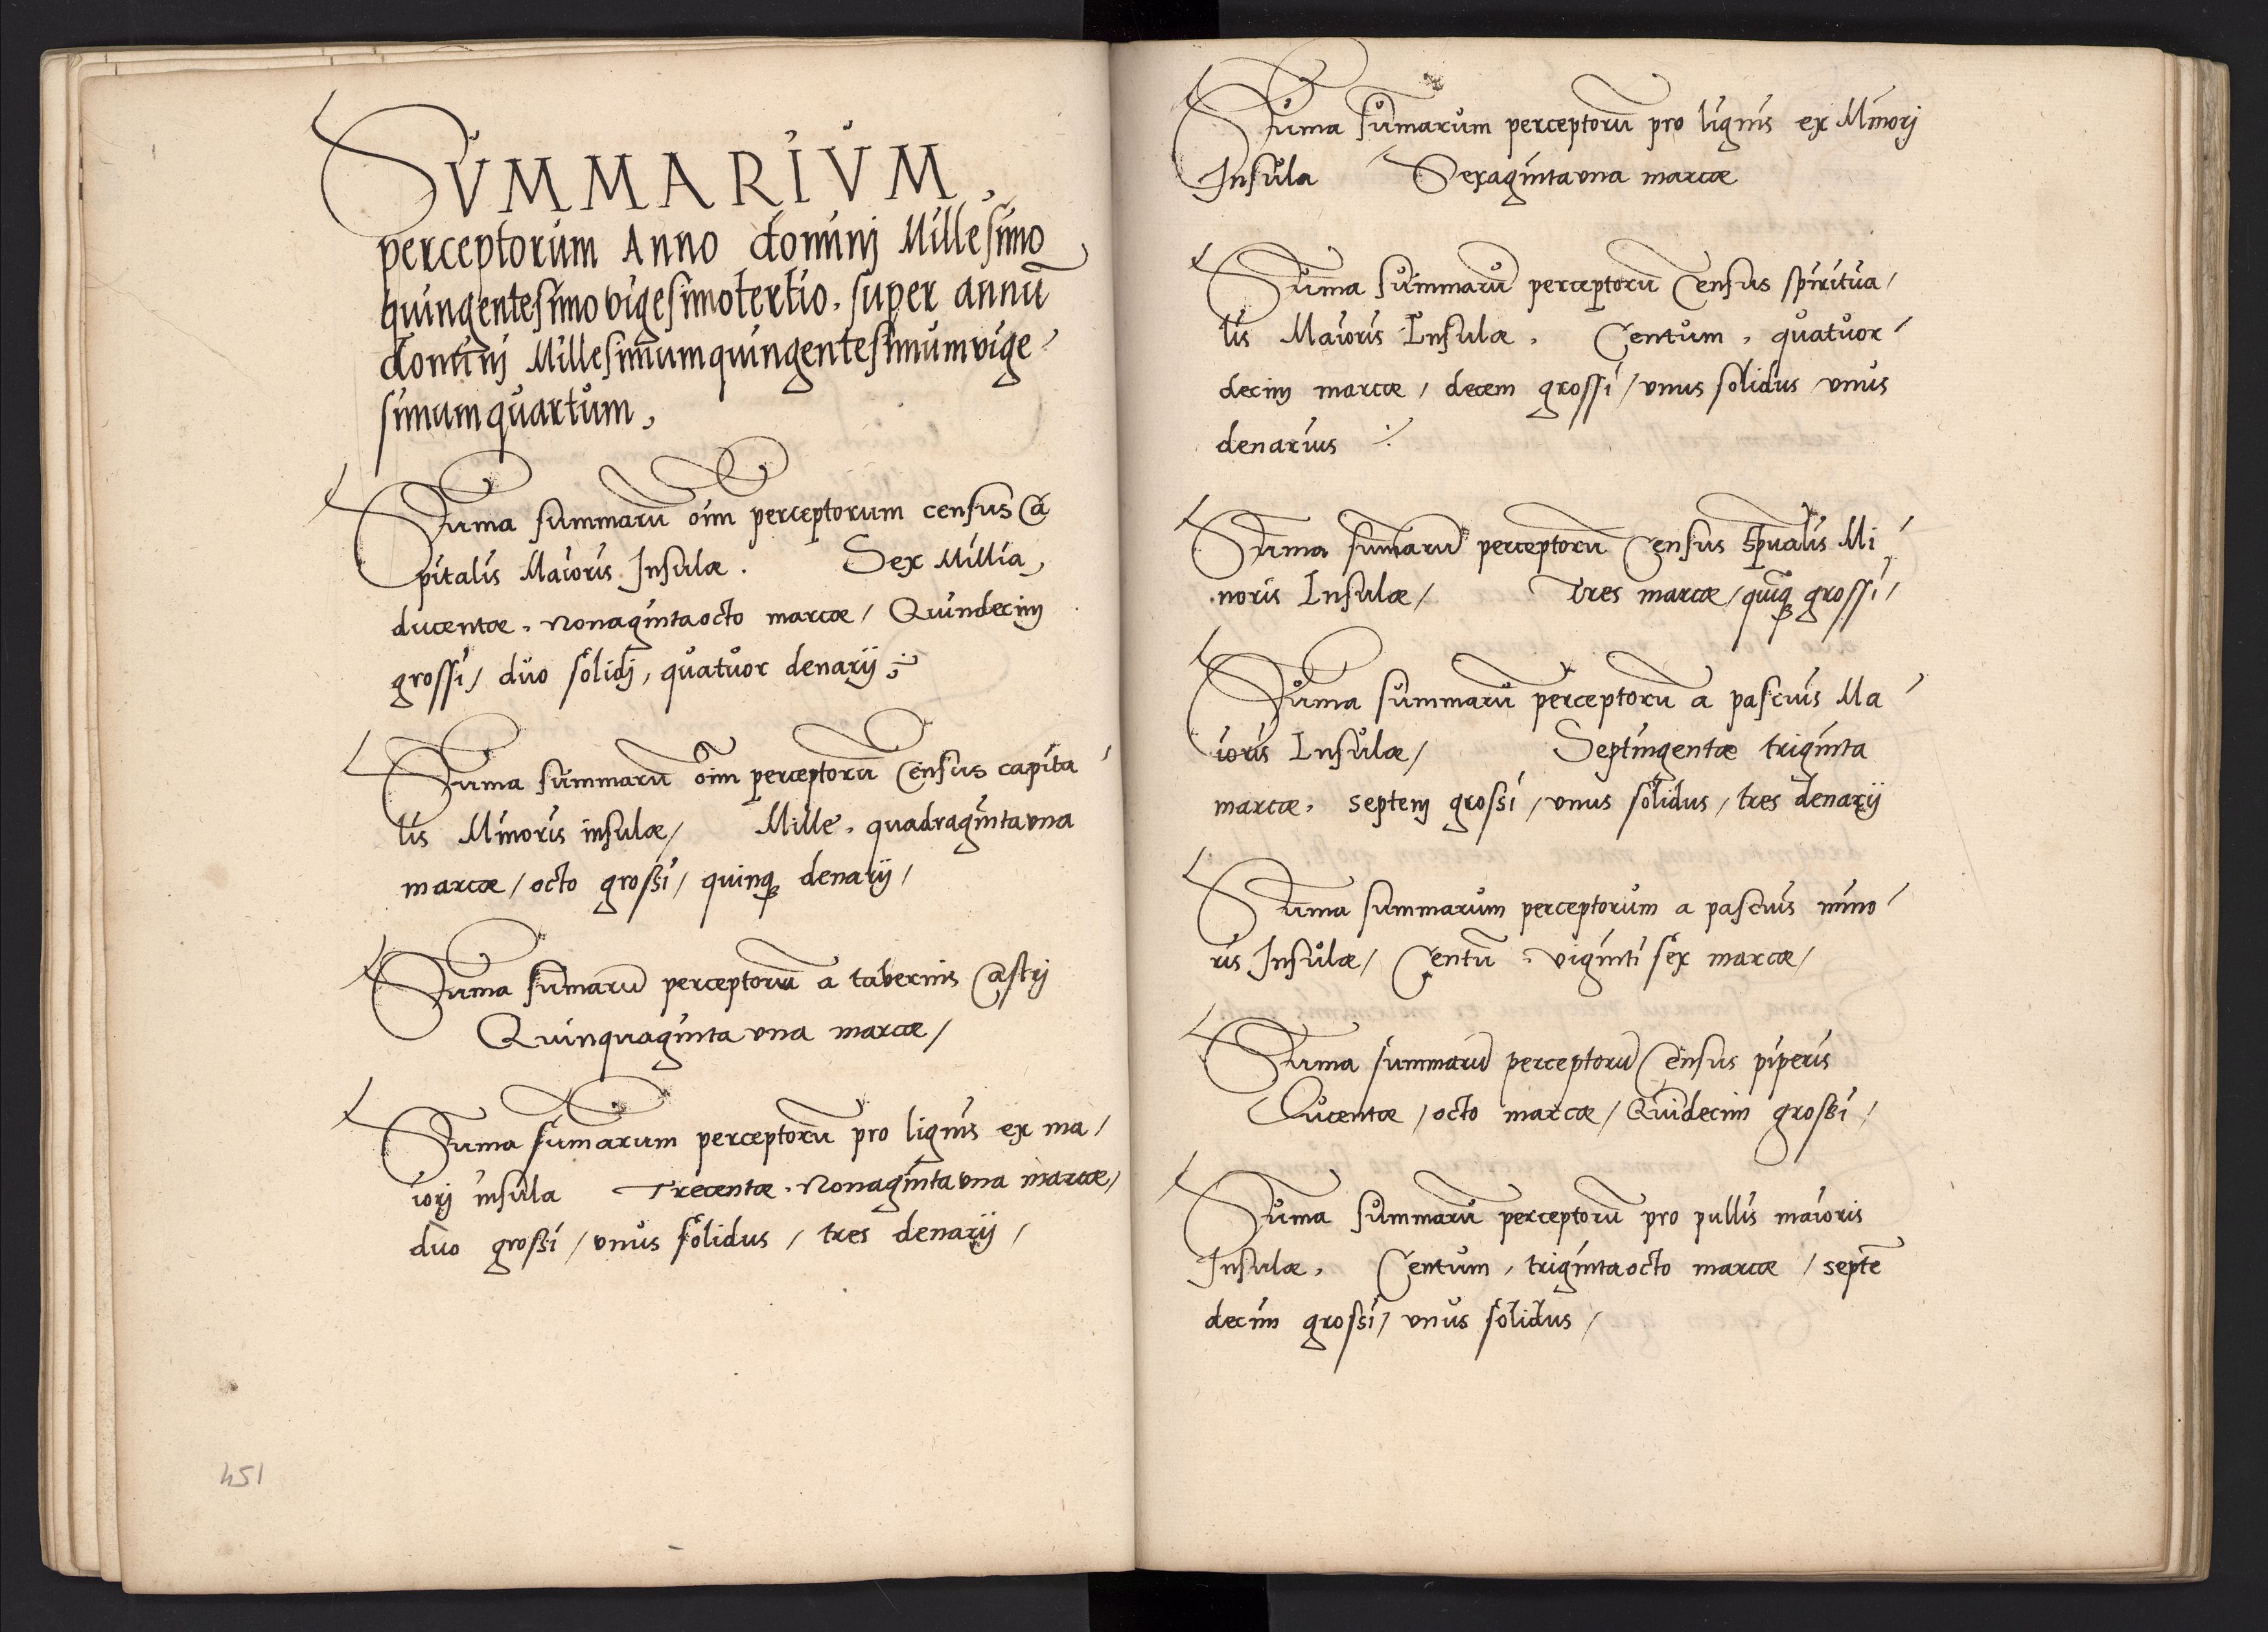 SUMMARIVM,
perceptorum Anno dominj Millesimo
quingentesimo vigesimotertio, super annū
dominj Millesimumquingentesimumvige
simumquartum,
Sūma summarū oīm perceptorum census Ca
pitalis Maioris Insulæ. Sex Millia,
ducentæ, Nonagintaocto marcæ / Quindecim
grossi / duo solidj, quatuor denarij
Sūma summarū oīm perceptorū Census capita
lis Minoris insulæ / Mille, quadragintauna
marcæ / octo grossi / quinqꝫ denarij /
Sūma sūmarū perceptorū a tabernis Castrj
Quinquaginta vna marcæ /
Sūma sūmarum perceptorū pro lignis ex ma /
iorj insula Trecentæ, Nonagintavna marcæ /
duo grossi / vnus solidus / tres denarij /
451
Sūma sūmarum perceptorū pro lignis ex Minorj
Insula Sexagintavna marcæ
Sūma summarū perceptorū Census spiritua /
lis Maioris Insulæ, Centum, quatuor
decim marcæ / decem grossi / vnus solidus vnus
denarius
Sūma sūmarū perceptorū Census spūalis Mi
noris Insulæ / Tres marcæ / quīqꝫ grossi /
Sūma summarū perceptorū a pascuis Ma
ioris Insulæ / Septingentæ triginta
marcæ, septem grossi / vnus solidus / tres denarij
Sūma summarum perceptorum a pascuis mino
ris Insulæ / Centū, viginti sex marcæ /
Sūma summarū perceptorū Census piperis
Ducentæ / octo marcæ / Quīdecim grossi /
Sūma summarū perceptorū pro pullis maioris
Insulæ, Centum, trigintaocto marcæ / septē
decim grossi / vnus solidus /